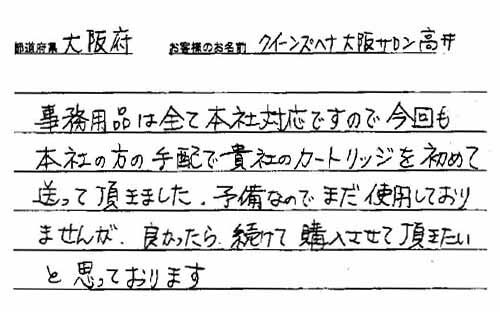 都道府県 大阪府 お客様のお名前 クイーンズヘナ大阪サロン高井
事務用品は全て本社対応ですので今回も
本社の方の手配で貴社のカートリッジを初めて
送って頂きました。予備なのでまだ使用しており
ませんが、良かったら続けて購入させて頂きたい
と思っております